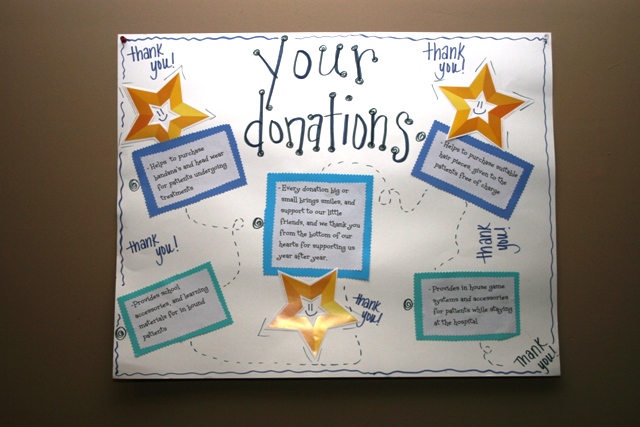 thank
you!
your
donations
thank
you!
-Helps to purchase
bandana's and head wear
for patients undergoing
treatments
-Helps to purchase suitable
hair pieces, given to the
patients free of charge
-Every donation big or
small brings smiles, and
support to our little
friends, and we thank you
from the bottom of our
hearts for supporting us
year after year.
thank
you!
thank
you!
-Provides school
accessories, and learning
materials for in bound
patients
thank
you!
-Provides in house game
systems and accessories
for patients while staying
at the hospital
Thank
you!